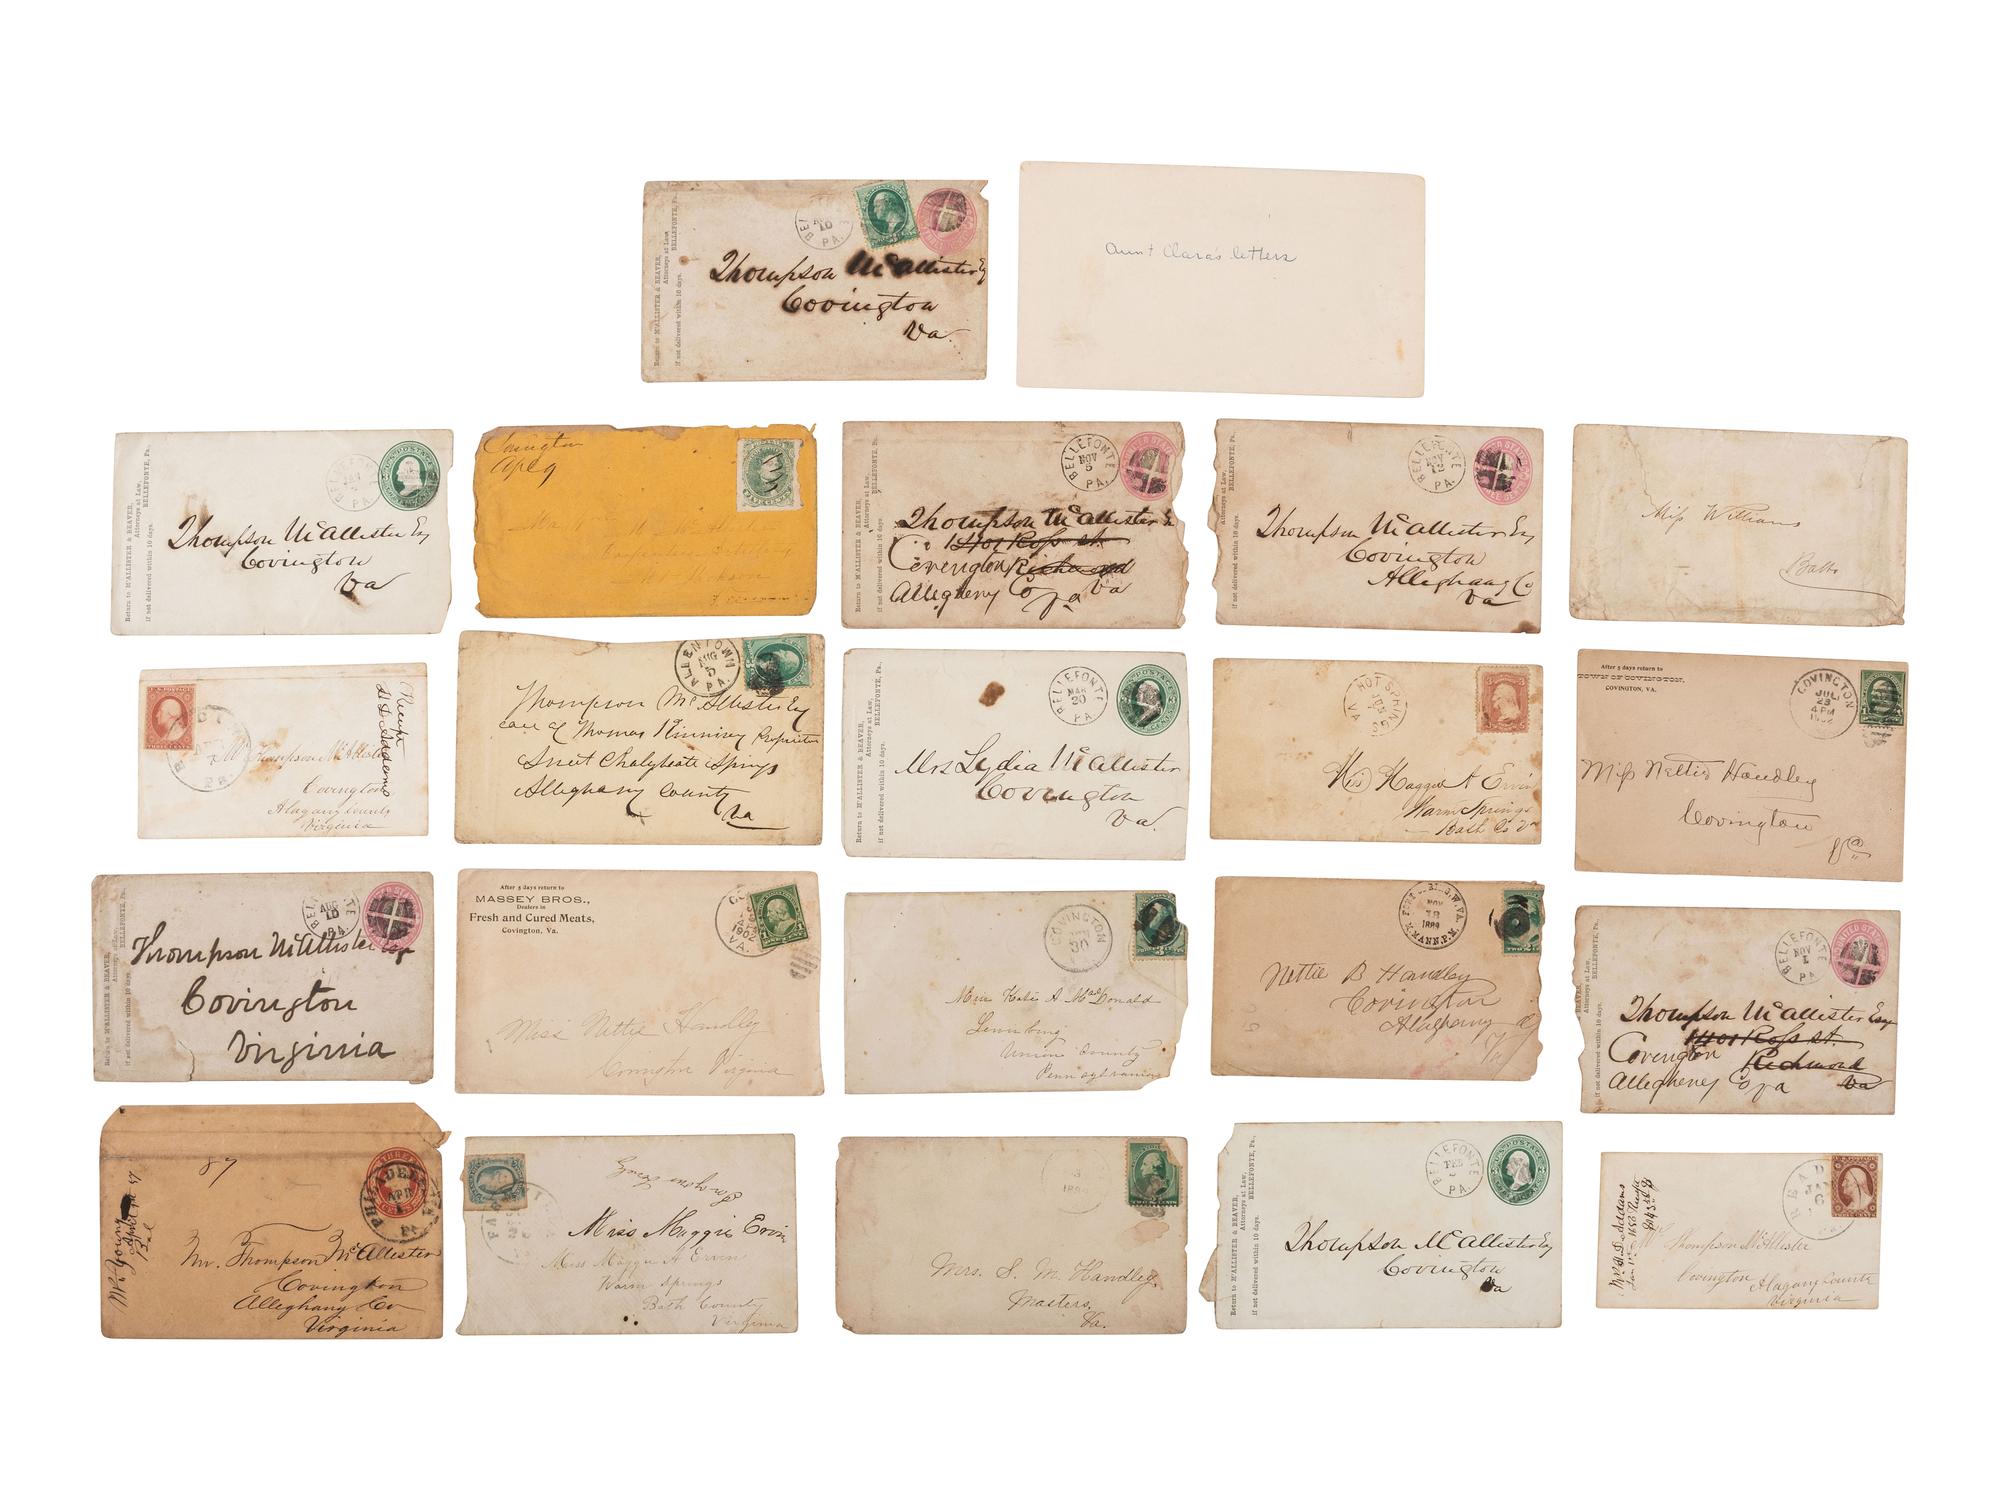 Return to M'ALLISTER & BEAVER,
Attorneys at Law,
BELLEFONTE, Pa.
If not delivered within 10 days.
10
PA.
Thompson McAllister Esq
Covington
Va
Aunt Clara's letters
Return to M'ALLISTER & BEAVER,
Attorneys at Law,
BELLEFONTE, Pa.
If not delivered within 10 days.
JAN
PA.
Thompson McAllister Esq
Covington
Va
Covington
Apl 9
Return to M'ALLISTER & BEAVER,
Attorneys at Law,
BELLEFONTE, Pa.
If not delivered within 10 days.
BELLEFONTE
NOV
5
PA.
Thompson McAllister
1401 Ross st.
Covington Richmond
Allegheny Co Va Va
Return to M'ALLISTER & BEAVER,
Attorneys at Law,
BELLEFONTE, Pa.
If not delivered within 10 days.
BELLEFONTE
NOV
12
PA.
Thompson McAllister Esq
Covington
Alleghany Co
Va
Miss Williams
Bath
U.S. POSTAGE
THREE CENTS
PA.
Mr Thompson McAllister
Covington
Alagany County
Virginia
ALLENTOWN
AUG
PA.
Thompson McAllister Esq
care of Thomas Kinnirey Proprietor
Sweet Chalybeate Springs
Alleghany County
Va
Return to M'ALLISTER & BEAVER,
Attorneys at Law,
BELLEFONTE, Pa.
If not delivered within 10 days.
BELLEFONTE
MAR
20
PA.
Mrs Lydia McAllister
Covington
Va.
HOT SPRINGS
JUN
VA
Miss Maggie A Ervin
Warm Springs
Bath Co Va
After 5 days return to
TOWN OF COVINGTON,
COVINGTON, VA.
COVINGTON
JUL
23
4 PM
1902
Miss Nettie Handley
Covington
Va
Return to M'ALLISTER & BEAVER,
Attorneys at Law,
BELLEFONTE, Pa.
If not delivered within 10 days.
BELLEFONTE
AUG
10
PA.
Thompson McAllister Esq
Covington
Virginia
After 5 days return to
MASSEY BROS.,
Dealers in
Fresh and Cured Meats,
Covington, Va.
1902
VA.
Miss Nettie Handley
Covington Virginia
COVINGTON
30
Miss Katie A MacDonald
Lewisburg
Union County
Pennsylvania
NOV
18
1889
MANN, P.M.
Nettie B Handley
Covington
Alleghany Co
Va
BELLEFONTE
NOV
1
PA.
Thompson McAllister Esq
1401 Ross st.
Covington Richmond
Allegheny Co Va Va
87
PHILADELPHIA
APR
Pa.
Mr. Thompson McAllister
Covington
Alleghany Co
Virginia
Mr Young
Miss Maggie Ervin
Miss Maggie A Ervin
Warm Springs
Bath County
Virginia
Mrs. S. M. Handley,
Masters,
Va.
Return to M'ALLISTER & BEAVER,
Attorneys at Law,
BELLEFONTE, Pa.
If not delivered within 10 days.
BELLEFONTE
FEB
PA.
Thompson McAllister Esq
Covington
Va
Mr Thompson McAllister
Covington Alagany County
Virginia